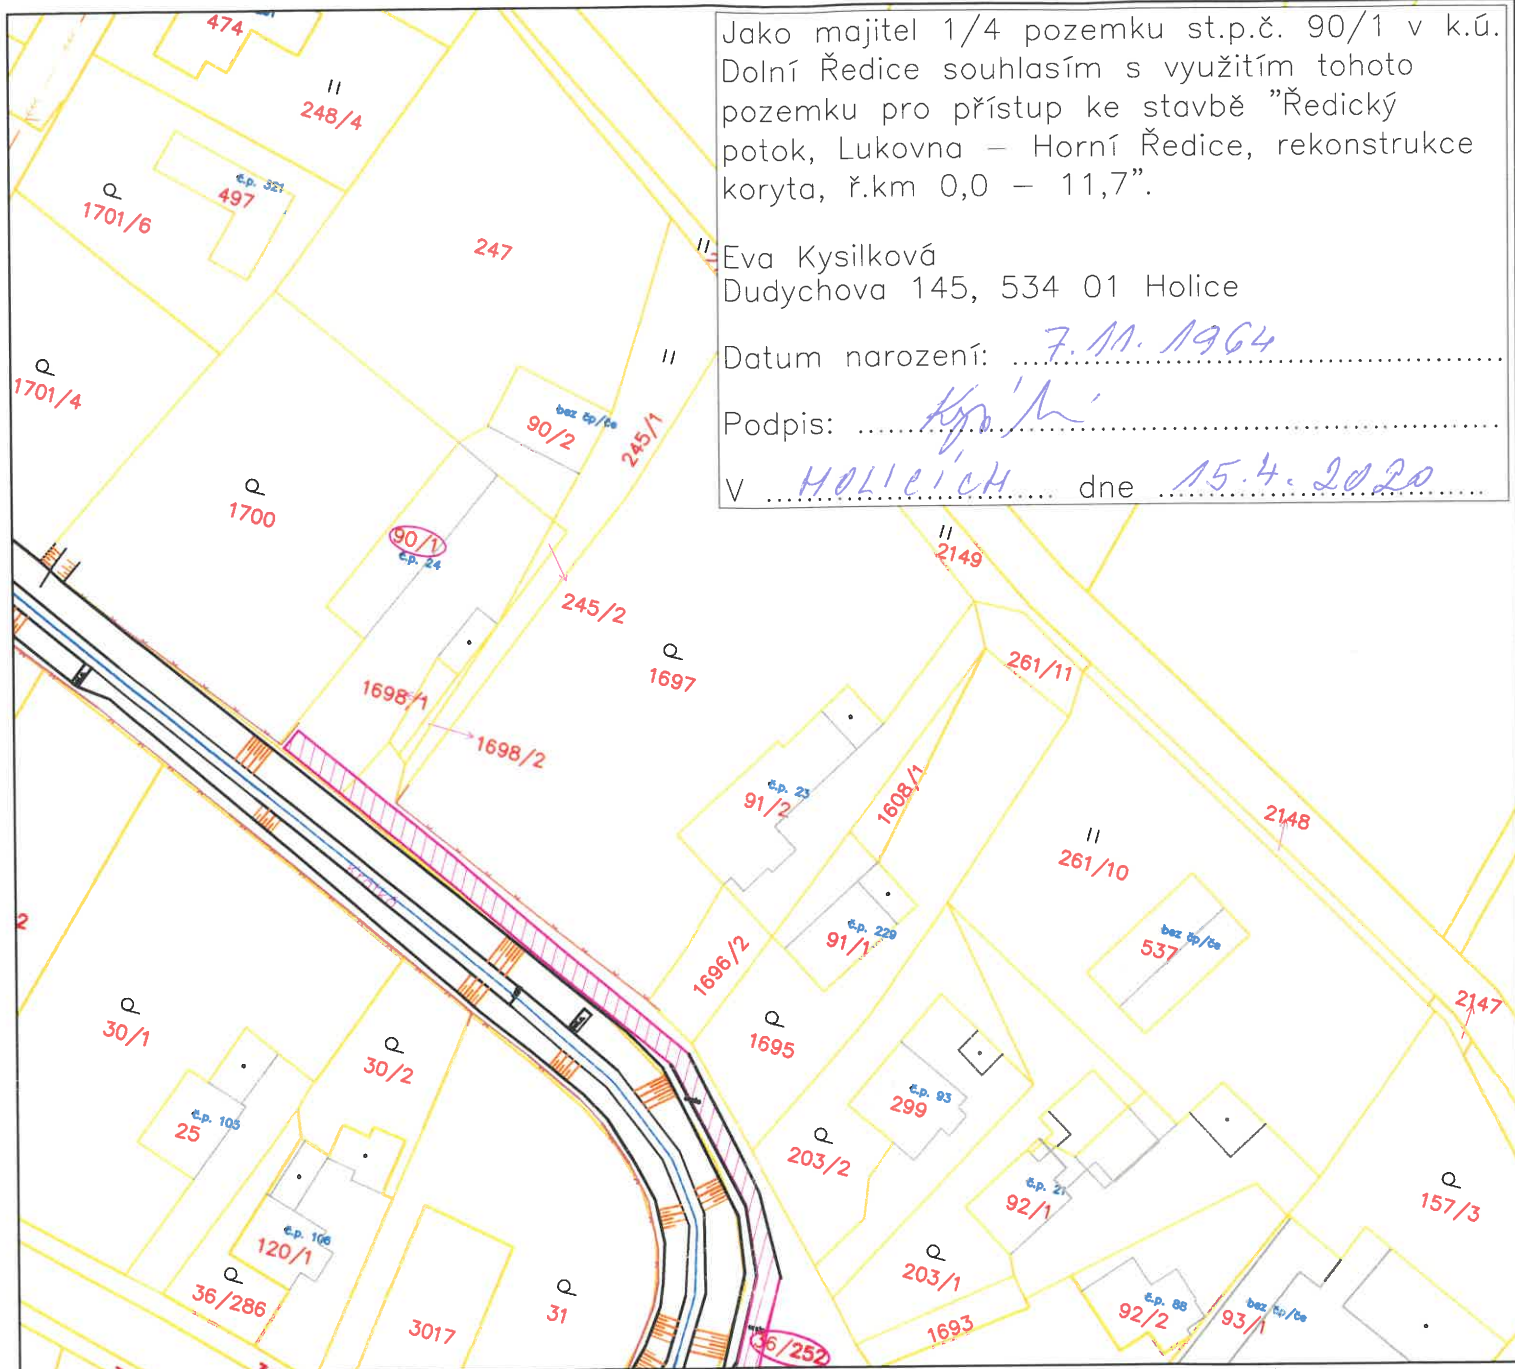 Jako majitel 1/4 pozemku st.p.č. 90/1 v k.ú.
Dolní Ředice souhlasím s využitím tohoto
pozemku pro přístup ke stavbě "Ředický
potok, Lukovna – Horní Ředice, rekonstrukce
koryta, ř.km 0,0 – 11,7".
Eva Kysilková
Dudychova 145, 534 01 Holice
Datum narození: 7. 11. 1964
Podpis:
V HOLICÍCH dne 15. 4. 2020
474
248/4
č.p. 321
497
1701/6
247
1701/4
bez čp/če
90/2
245/1
1700
90/1
č.p. 24
2149
245/2
1697
261/11
1698/1
1698/2
č.p. 23
91/2
1608/1
2148
261/10
2
č.p. 229
91/1
bez čp/če
537
1696/2
2147
30/1
1695
30/2
č.p. 93
299
č.p. 105
25
203/2
č.p. 21
92/1
157/3
č.p. 106
120/1
203/1
36/286
31
č.p. 88
92/2
bez čp/če
93/1
3017
1693
36/252